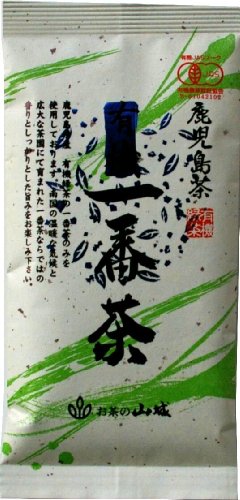 有機JASマーク
JAS
鹿児島茶
有機
緑茶
有機一番茶
鹿児島産 有機緑茶の一番茶のみを
使用しております。南国の温暖な気候と
広大な茶園にて育まれた一番茶ならではの
香りとしっかりとした旨みをお楽しみ下さい。
お茶の山城